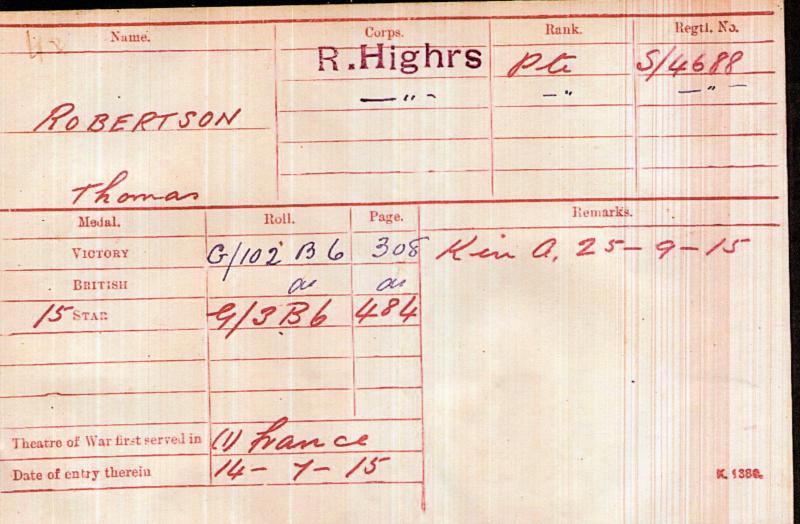 Name. Corps. Rank. Regtl. No.
R.Highrs Pte S/4688
— " - — " — " —
ROBERTSON
Thomas
Medal. Roll. Page. Remarks.
VICTORY G/102 B6 308 K in A. 25-9-15
BRITISH do do
15 STAR G/3 B6 484
Theatre of War first served in (1) France
Date of entry therein 14-7-15
K. 1380.